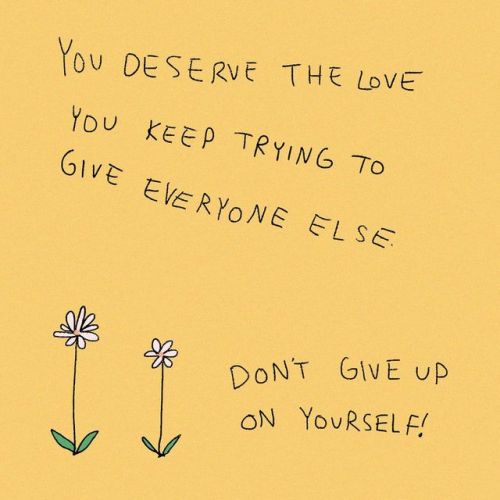 YOU DESERVE THE LOVE
YOU KEEP TRYING TO
GIVE EVERYONE ELSE.
DON'T GIVE UP
ON YOURSELF!